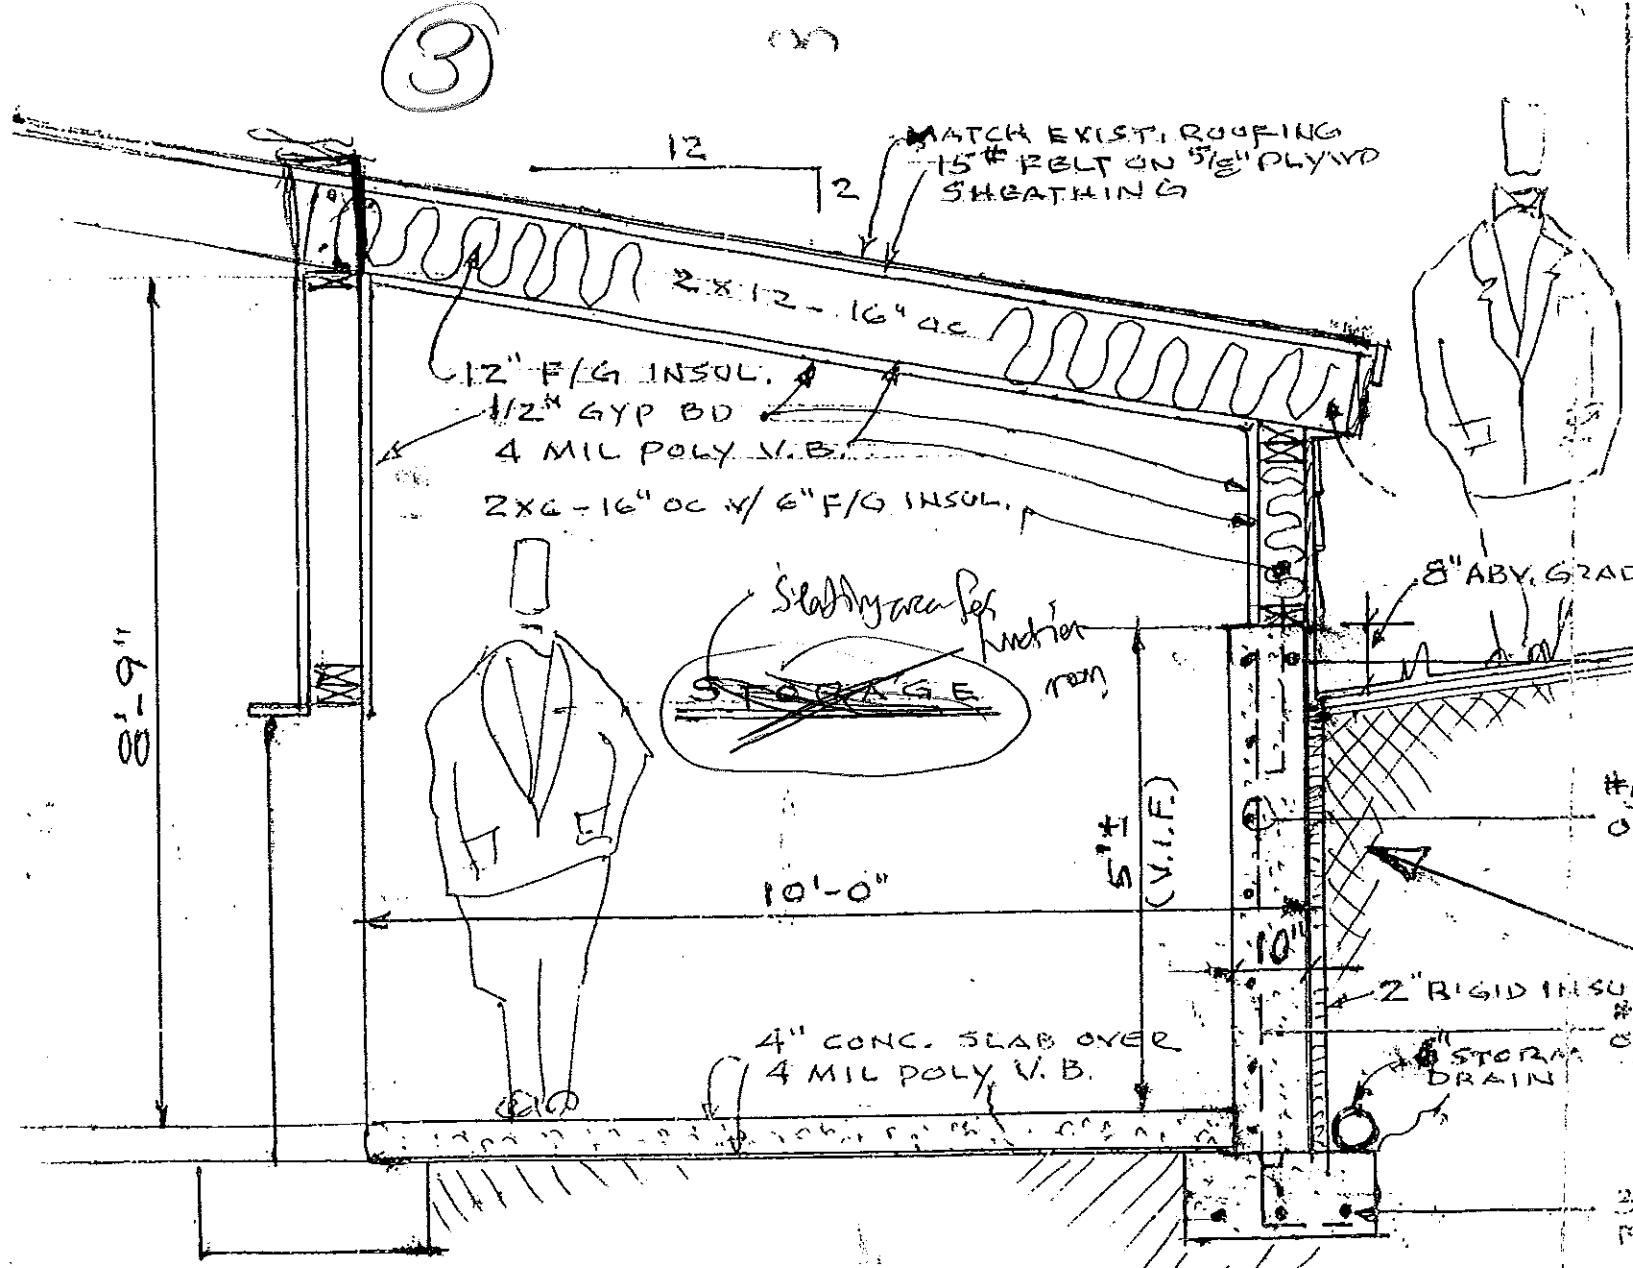 3
12
2
MATCH EXIST. ROOFING
15# FELT ON 5/8" PLYWD
SHEATHING
2x12 - 16" OC
12" F/G INSUL.
1/2" GYP BD
4 MIL POLY V.B.
2x6 - 16" OC W/ 6" F/G INSUL.
8" ABV. GRAD
8'-9"
area for
room
STORAGE
5'±
(V.I.F.)
10'-0"
10"
2" RIGID INSU
4" CONC. SLAB OVER
4 MIL POLY V.B.
STORM
DRAIN